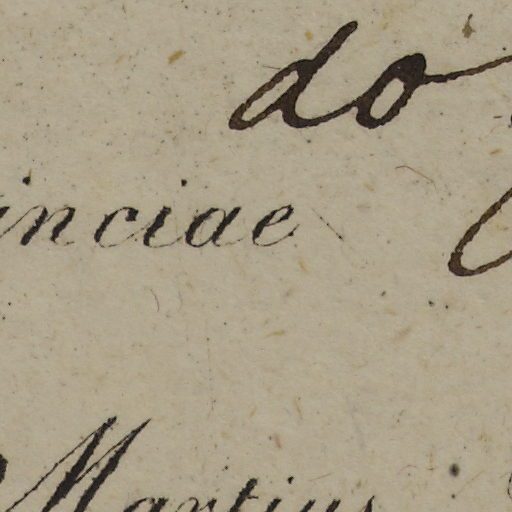 do
inciae
Martius